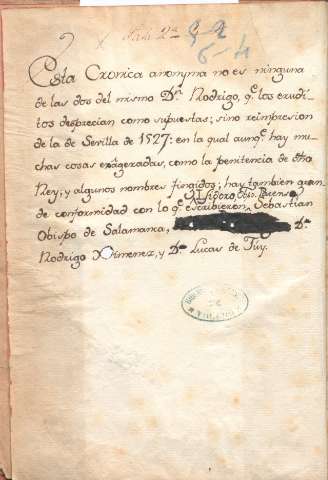 Esta Cronica anonyma no es ninguna
de las dos del mismo Dn. Rodrigo, qe. los erudi-
tos desprecian como supuestas; sino reimpresion
de la de Sevilla de 1527: en la qual aunqe. hay mu-
chas cosas exâgeradas, como la penitencia de dho
Rey; y algunos nombres fingidos; hay tambien gran
de conformidad con lo qe. escribieron Sebastian
Obispo de Salamanca, Dn.
Rodrigo Ximenez, y Dn. Lucas de Tuy.